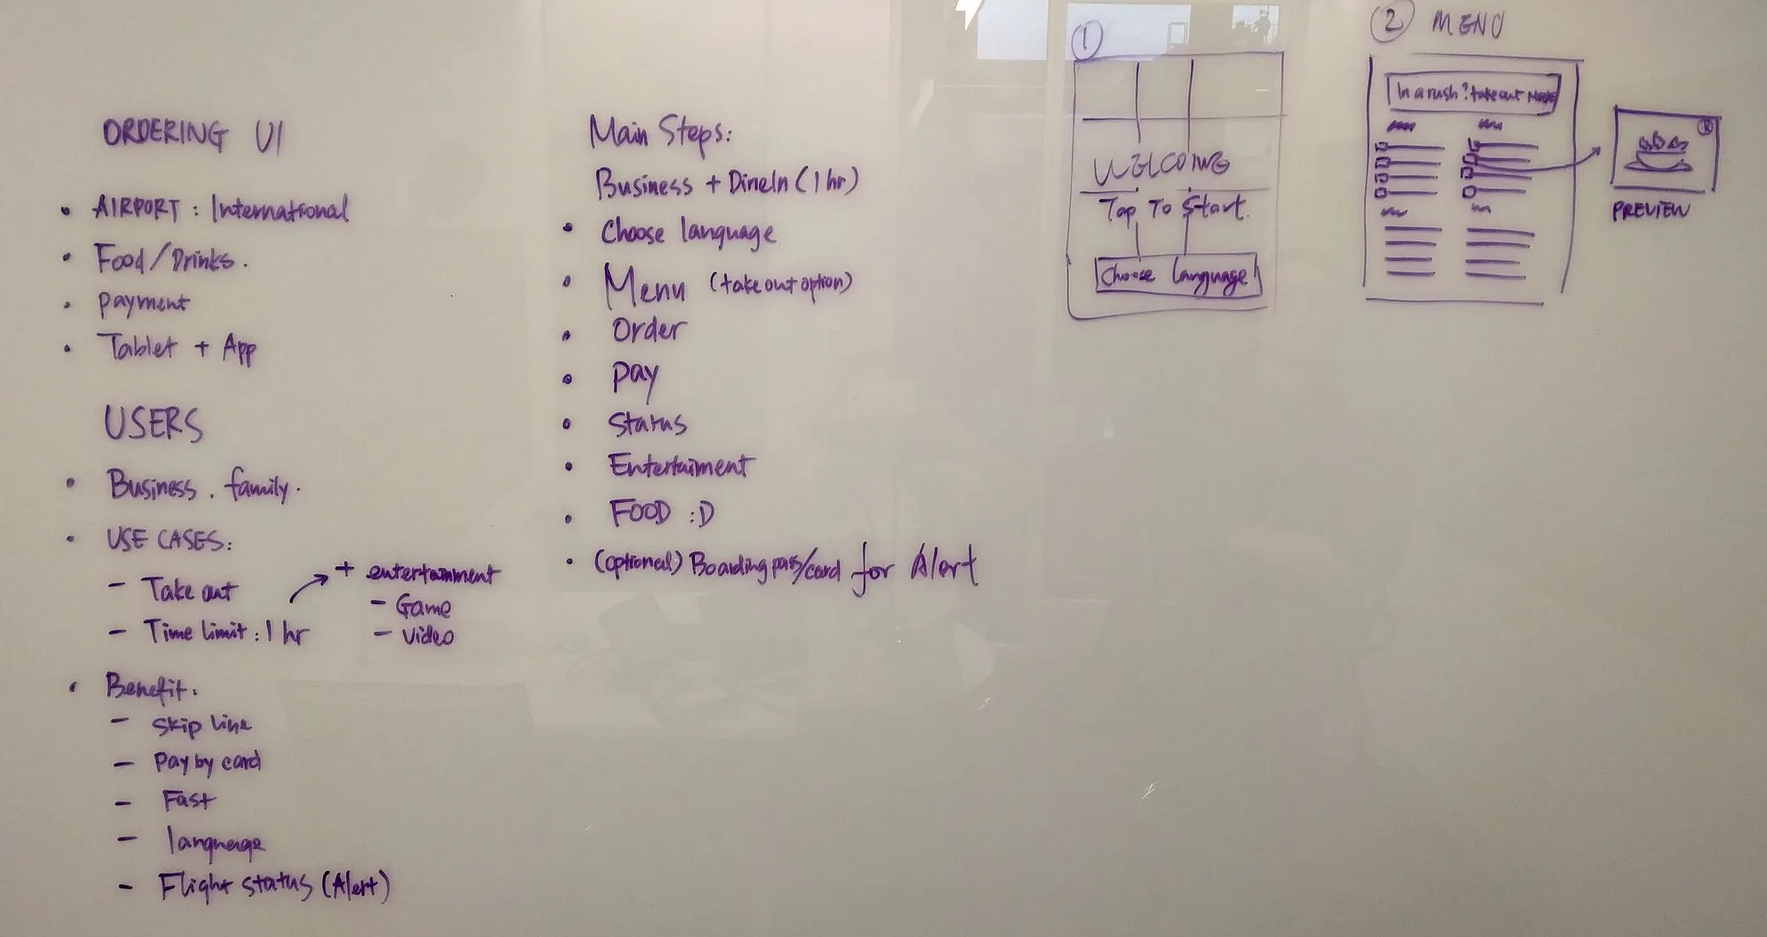 ORDERING UI
• AIRPORT : International
• Food/Drinks.
• payment
• Tablet + App
USERS
• Business . family.
• USE CASES:
– Take out
– Time limit : 1 hr
+ entertainment
– Game
– Video
• Benefit.
– skip line
– Pay by card
– Fast
– language
– Flight status (Alert)
Main Steps:
Business + DineIn (1 hr)
• Choose language
• Menu (take out option)
• Order
• Pay
• Status
• Entertaiment
• FOOD :D
• (optional) Boarding pass/card for Alert
①
WELCOME
Tap To Start.
Choose language
② MENU
In a rush? take out
X
PREVIEW